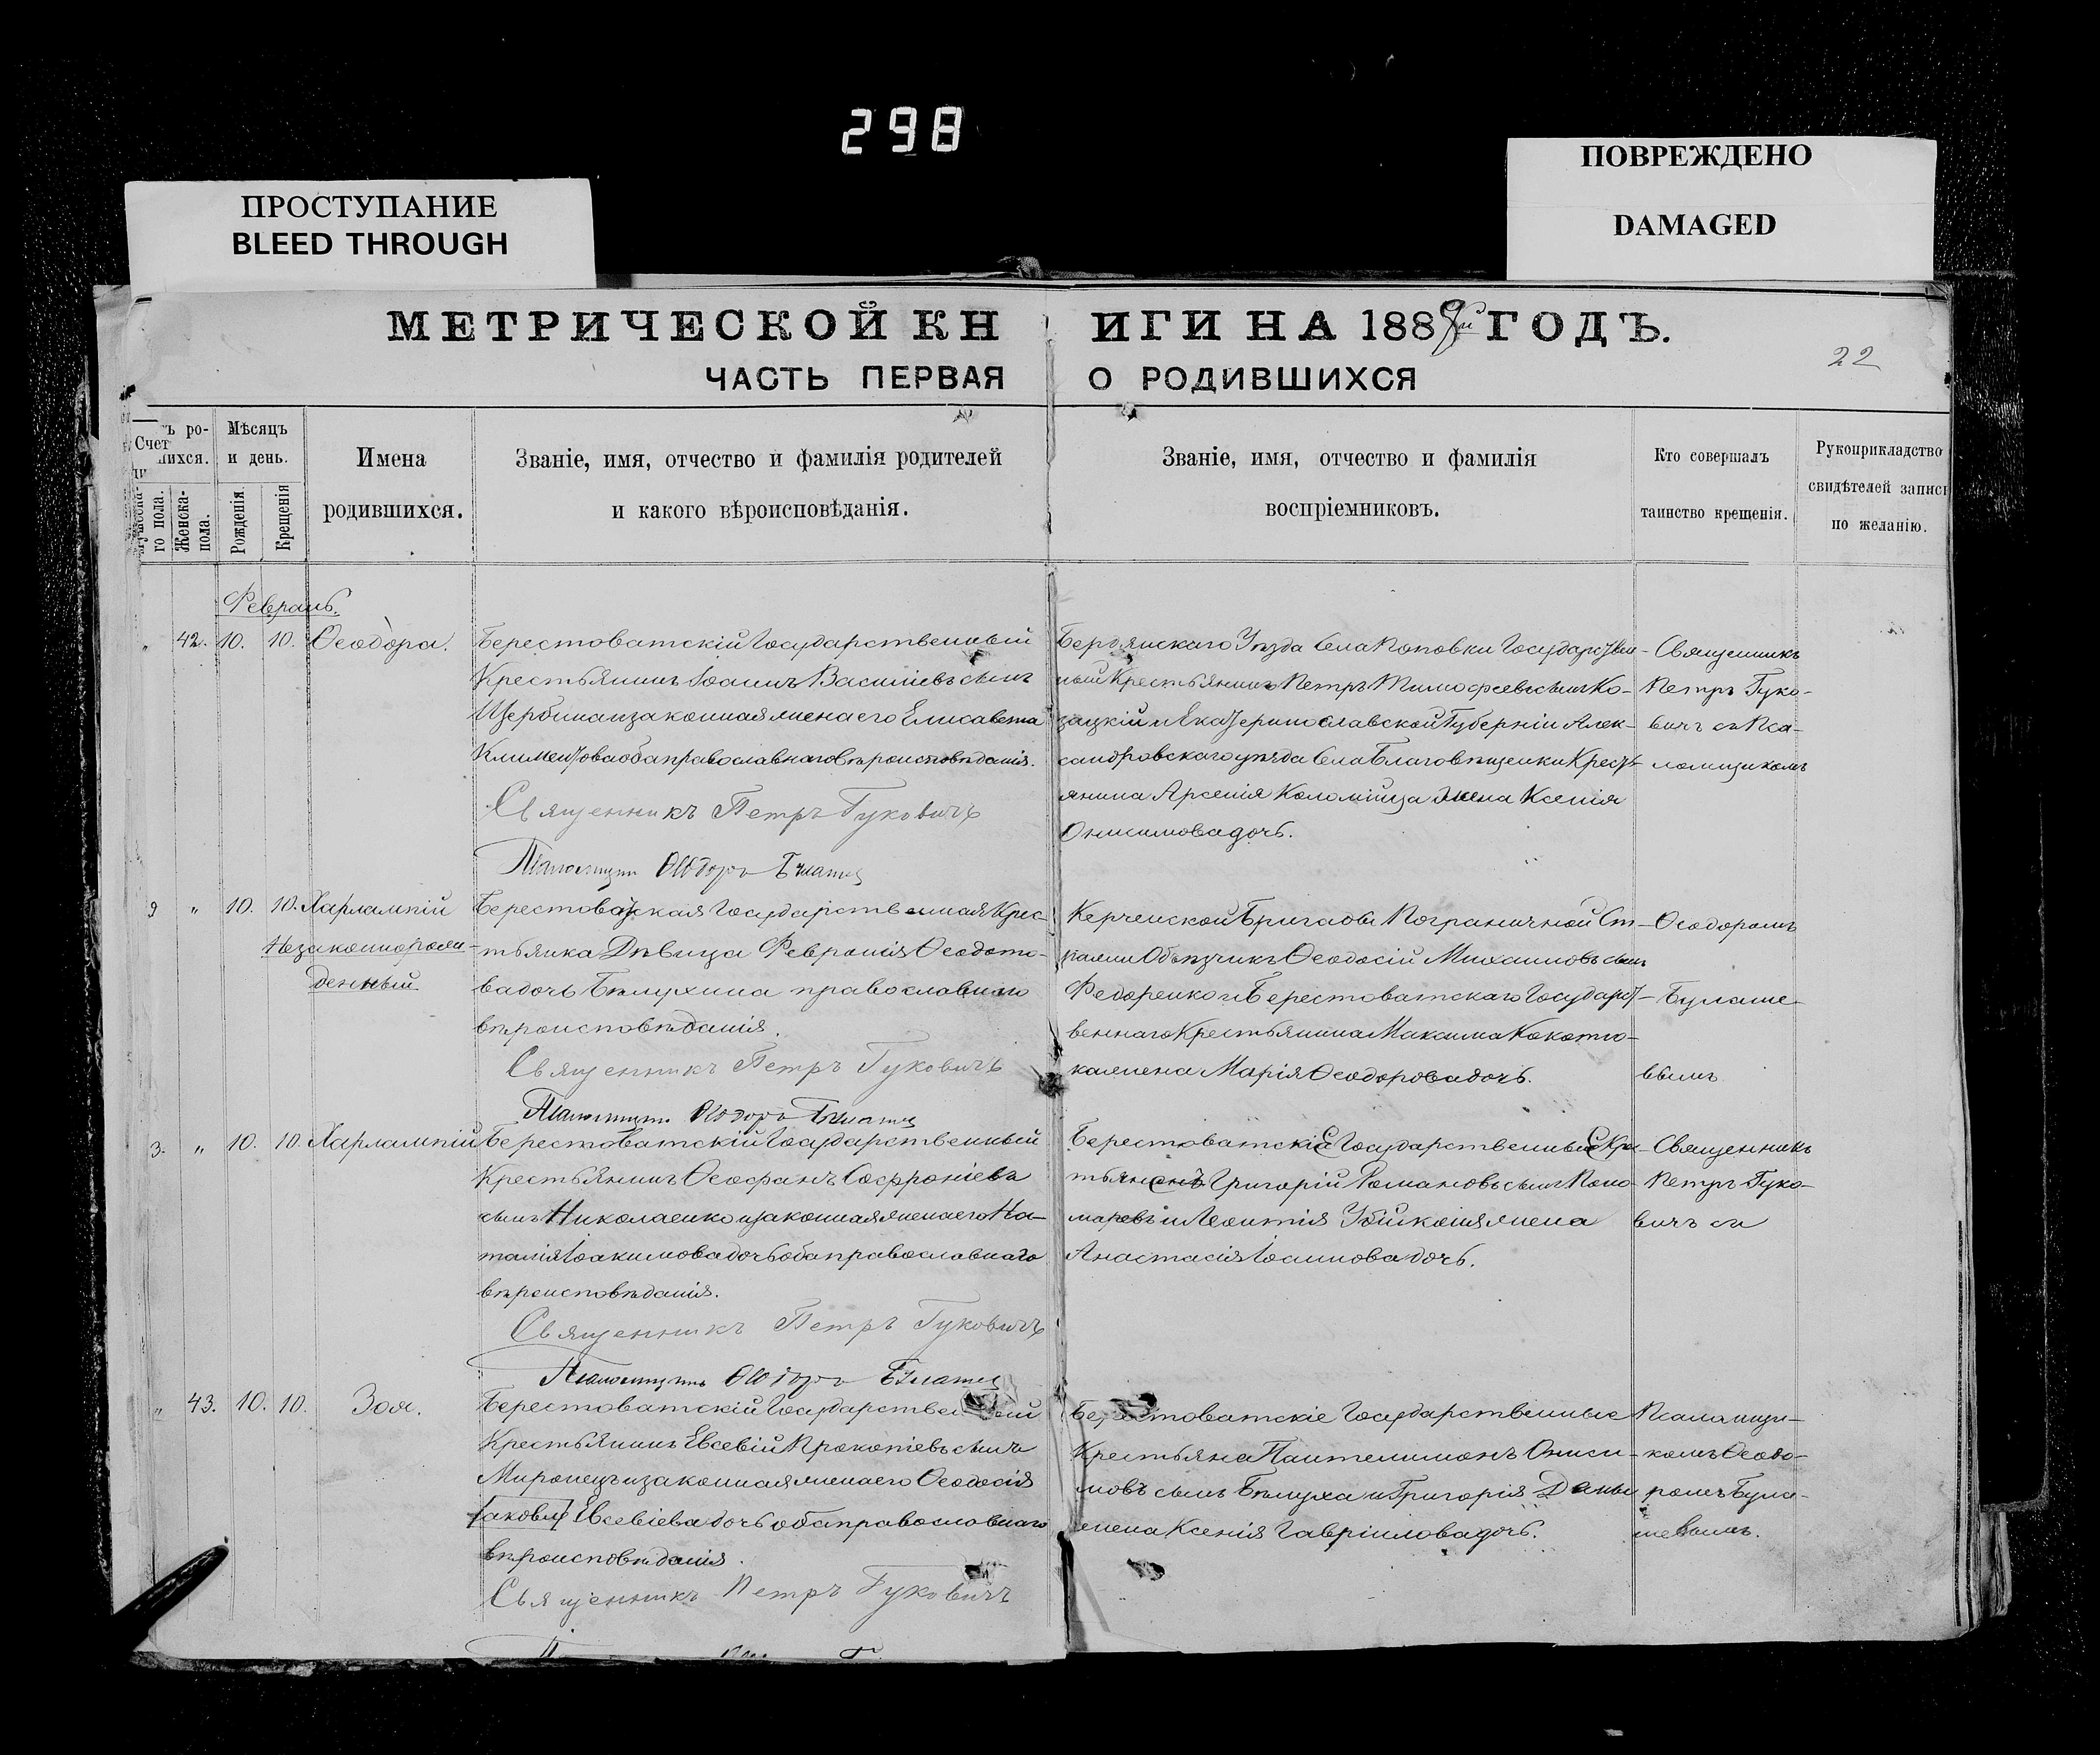 298
ПРОСТУПАНИЕ
BLEED THROUGH
ПОВРЕЖДЕНО
DAMAGED
МЕТРИЧЕСКОЙ КН ИГИ НА 1889й ГОДЪ.
ЧАСТЬ ПЕРВАЯ О РОДИВШИХСЯ
22
Счетъ ро-
Мѣсяцъ
и день.
го пола.
Женска-
пола.
Рожденія.
Крещенія
Имена
родившихся.
Званіе, имя, отчество и фамилія родителей
и какого вѣроисповѣданія.
Званіе, имя, отчество и фамилія
воспріемниковъ.
Кто совершалъ
таинство крещенія.
Рукоприкладство
свидѣтелей записи
по желанію.
Февраль.
„ 42. 10. 10. Ѳеодора.
Берестоватскій Государственный
Крестьянинъ Іоаннъ Василіевъ сынъ
Щербина и законная жена его Елисавета
Климентова оба православнаго вѣроисповѣданія.
Священникъ Петръ Гуковичъ
Псаломщикъ Ѳеодоръ
Бердянскаго Уѣзда Села Поповки Государствен-
ный Крестьянинъ Петръ Тимофеевъ сынъ Ко-
зацкій и Екатеринославской Губерніи Алек-
сандровскаго уѣзда Села Благовѣщенки Крест-
янина Арсенія Коломійца жена Ксенія
Онисимова дочь.
Священникъ
Петръ Гуко-
вичъ съ Пса-
ломщикомъ
„ 10. 10. Харлампій
Незаконнорож-
денный
Берестоватская Государственная Крес-
тьянка Дѣвица Февронія Ѳеодото-
ва дочь Бѣлухина православнаго
вѣроисповѣданія.
Священникъ Петръ Гуковичъ
Псаломщикъ Ѳеодоръ
Керченской Бригады Пограничной Ст-
ражи Объѣзчикъ Ѳеодосій Михаиловъ сынъ
Федоренко и Берестоватскаго Государст-
веннаго Крестьянина Максима Кокотю-
ка жена Марія Ѳеодорова дочь.
Ѳеодоромъ
Булаше
вымъ
3. „ 10. 10. Харлампій
Берестоватскій Государственный
Крестьянинъ Ѳеофанъ Софроніевъ
сынъ Николаенко и законная жена его На-
талія Іоакимова дочь оба православнаго
вѣроисповѣданія.
Священникъ Петръ Гуковичъ
Псаломщикъ Ѳеодоръ
Берестоватскіе Государственные Крес-
тьяне Григорій Романовъ сынъ Поно-
маревъ и Леонтія жена
Анастасія Іоаннова дочь.
Священникъ
Петръ Гуко-
вичъ съ
„ 43. 10. 10. Зоя.
Берестоватскій Государственный
Крестьянинъ Евсевій Прокопіевъ сынъ
Миронецъ и законная жена его Ѳеодосія
Евсевіева дочь оба православнаго
вѣроисповѣданія.
Священникъ Петръ Гуковичъ
Берестоватскіе Государственные
Крестьяне Пантелимонъ Ониси-
мовъ сынъ Бѣлуха и Григорія
жена Ксенія Гавріилова дочь.
Псаломщи-
комъ Ѳеодо-
ромъ Була-
шевымъ.